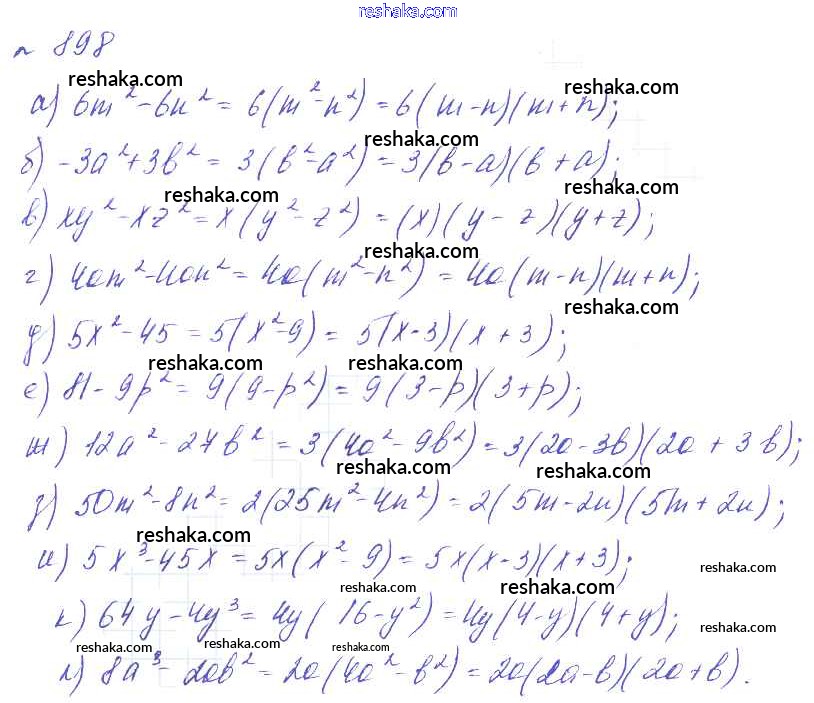 reshaka.com
№ 898
reshaka.com reshaka.com
а) 6m² - 6n² = 6(m² - n²) = 6(m - n)(m + n);
reshaka.com
б) -3a² + 3b² = 3(b² - a²) = 3(b - a)(b + a);
reshaka.com reshaka.com
в) xy² - xz² = x(y² - z²) = (x)(y - z)(y + z);
reshaka.com
г) 4am² - 4an² = 4a(m² - n²) = 4a(m - n)(m + n);
reshaka.com
д) 5x² - 45 = 5(x² - 9) = 5(x - 3)(x + 3);
reshaka.com reshaka.com
е) 81 - 9p² = 9(9 - p²) = 9(3 - p)(3 + p);
ж) 12a² - 27b² = 3(4a² - 9b²) = 3(2a - 3b)(2a + 3b);
reshaka.com reshaka.com
з) 50m² - 8n² = 2(25m² - 4n²) = 2(5m - 2n)(5m + 2n);
reshaka.com
и) 5x³ - 45x = 5x(x² - 9) = 5x(x - 3)(x + 3);
reshaka.com
reshaka.com reshaka.com
к) 64y - 4y³ = 4y(16 - y²) = 4y(4 - y)(4 + y);
reshaka.com
reshaka.com reshaka.com reshaka.com
л) 8a³ - 2ab² = 2a(4a² - b²) = 2a(2a - b)(2a + b).